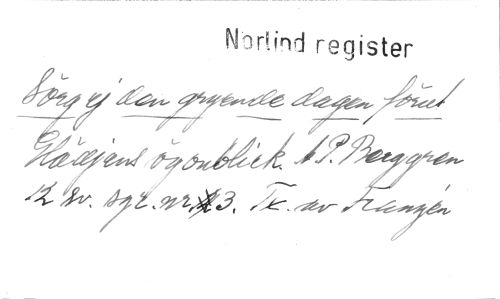 Norlind register
Sörg ej den gryende dagen förut
Glädjens ögonblick. A.P. Berggren
12 sv. sgr. nr. 3. Tx. av Franzén